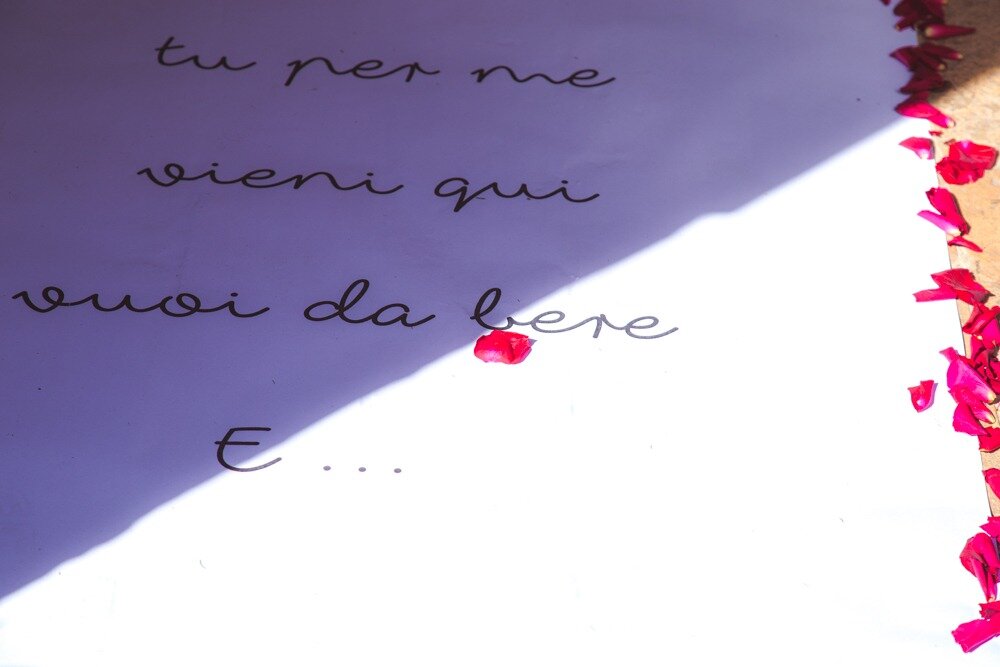 tu per me
vieni qui
vuoi da bere
E ...